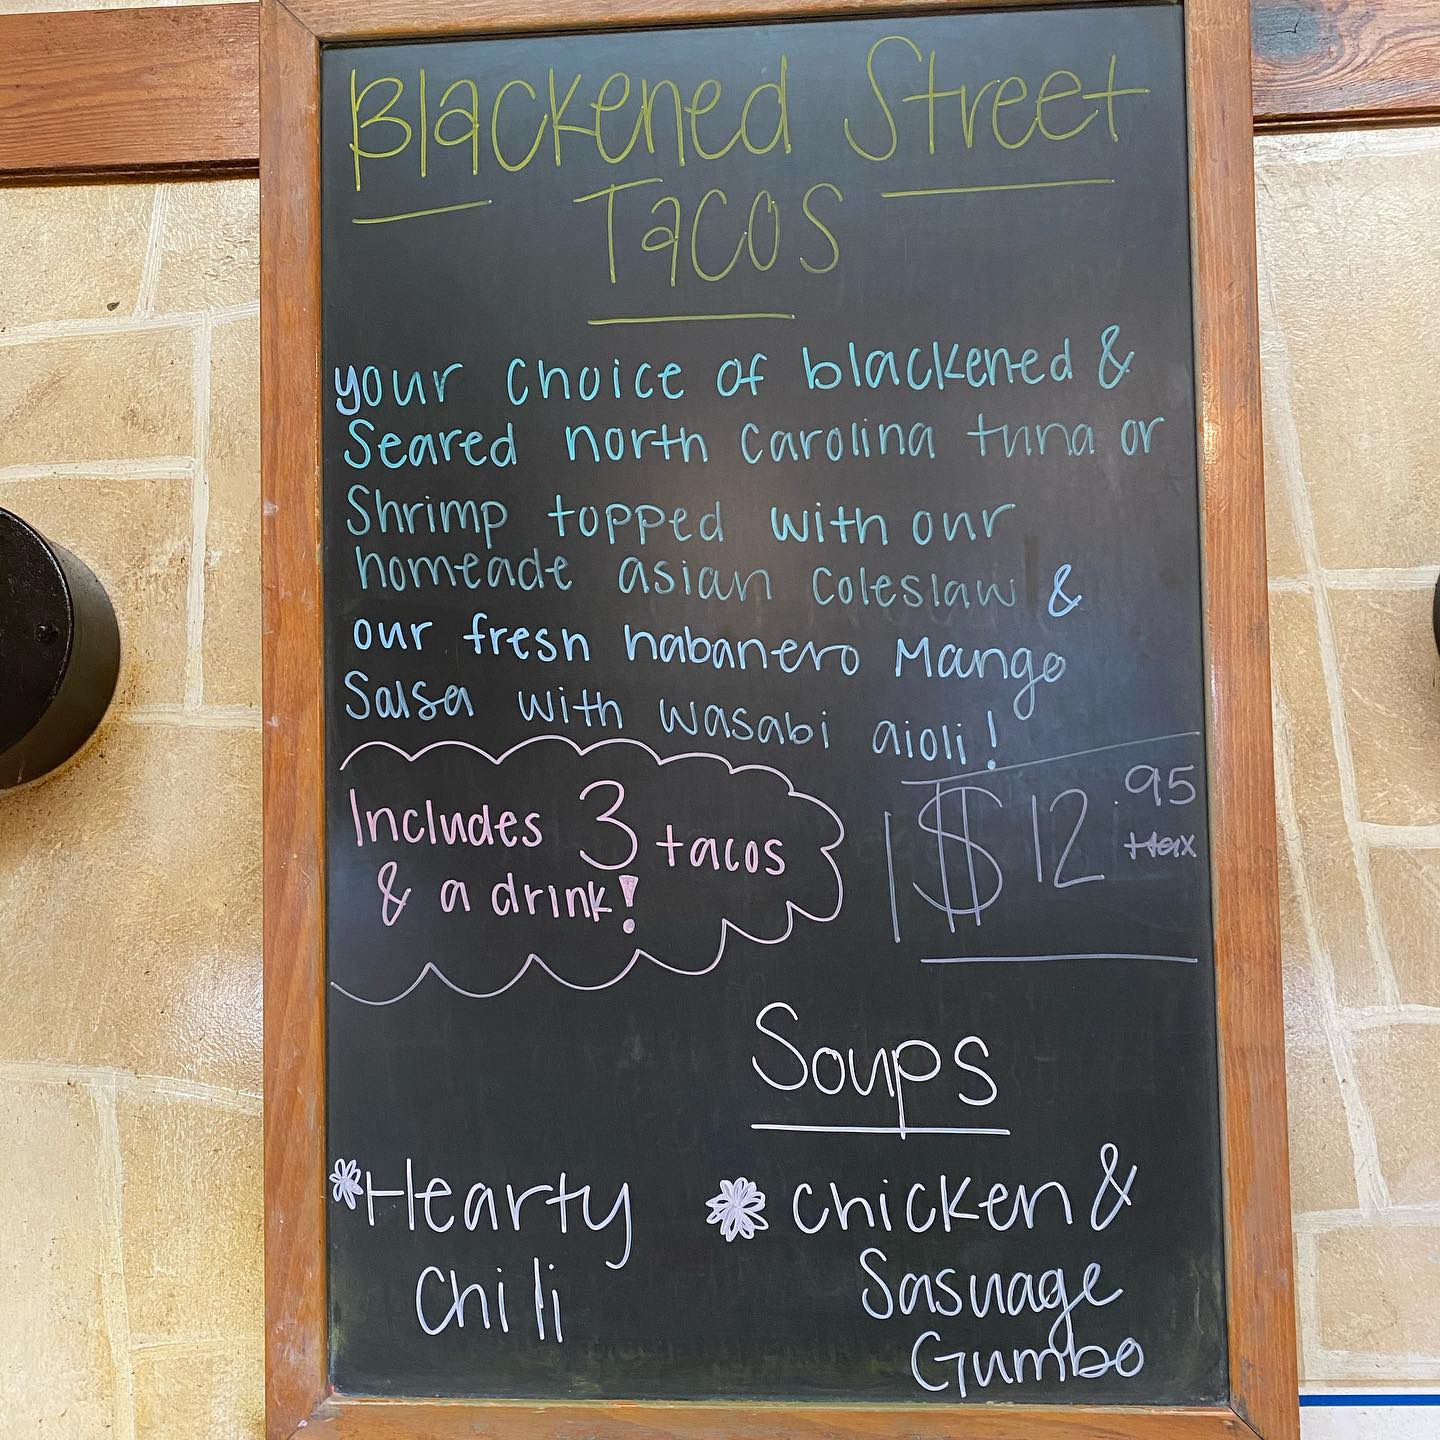 Blackened Street
Tacos
your choice of blackened &
Seared north carolina tuna or
Shrimp topped with our
homeade asian coleslaw &
our fresh habanero Mango
Salsa with wasabi aioli!
Includes 3 tacos
& a drink!
$12.95
+tax
Soups
*Hearty
Chili
* chicken &
Sasuage
Gumbo